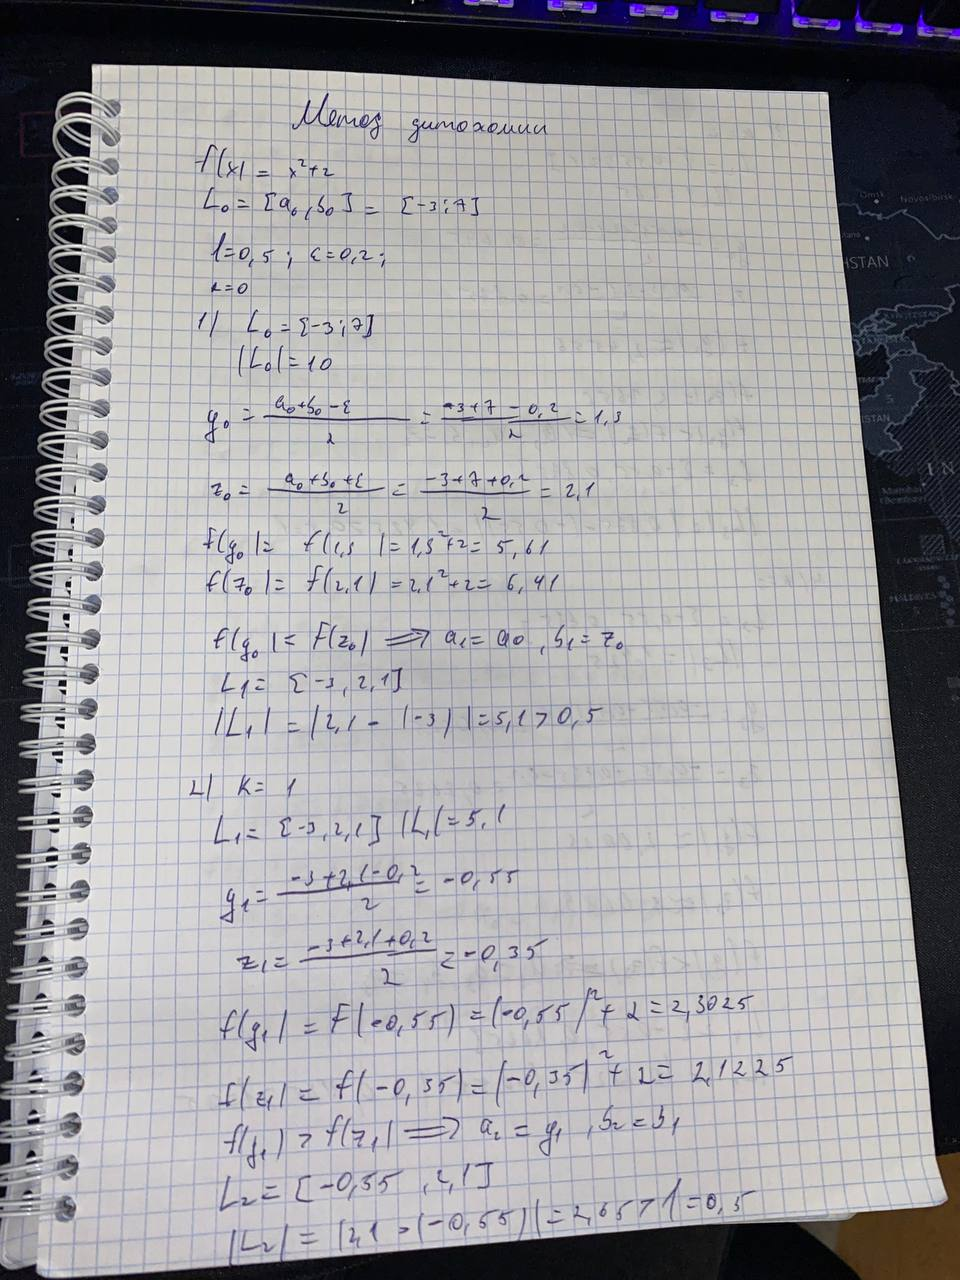 Метод дитохомии
f(x) = x²+2
L₀ = [a₀, b₀] = [-3; 7]
l=0,5; ε=0,2;
к=0
1) L₀ = [-3; 7]
|L₀| = 10
y₀ = (a₀+b₀-ε)/2 = (-3+7-0,2)/2 = 1,9
z₀ = (a₀+b₀+ε)/2 = (-3+7+0,2)/2 = 2,1
f(y₀) = f(1,9) = 1,9²+2 = 5,61
f(z₀) = f(2,1) = 2,1²+2 = 6,41
f(y₀) < F(z₀) ⟹ a₁ = a₀, b₁ = z₀
L₁ = [-3, 2,1]
|L₁| = |2,1 - (-3)| = 5,1 > 0,5
2) K = 1
L₁ = [-3, 2,1] |L₁| = 5,1
y₁ = (-3+2,1-0,2)/2 = -0,55
z₁ = (-3+2,1+0,2)/2 = -0,35
f(y₁) = F(-0,55) = (-0,55)²+2 = 2,3025
f(z₁) = f(-0,35) = (-0,35)²+2 = 2,1225
f(y₁) > f(z₁) ⟹ a₂ = y₁, b₂ = b₁
L₂ = [-0,55, 2,1]
|L₂| = |2,1 - (-0,55)| = 2,65 > l = 0,5
Omsk
Novosibirsk
HSTAN